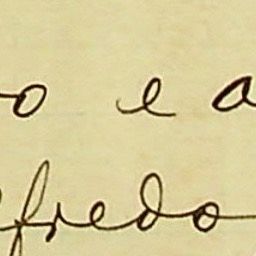 o e a
fredo